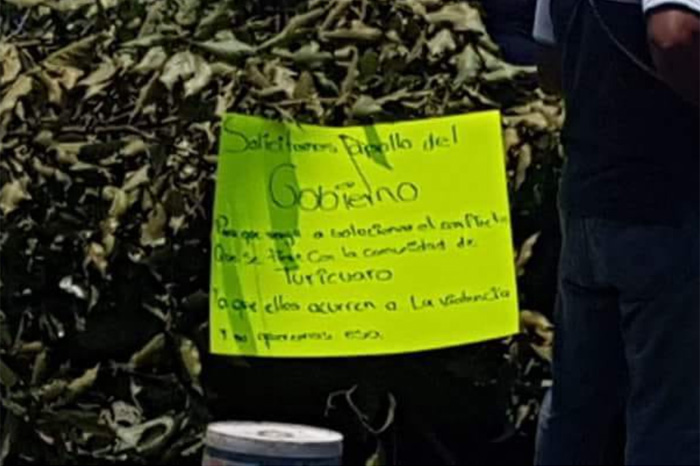 Solicitamos Apollo del
Gobierno
Para que venga a solocionar el conflicto
Que se tiene con la comunidad de
Turicuaro
Ya que ellos acurren a La violencia
Y no queremos eso.